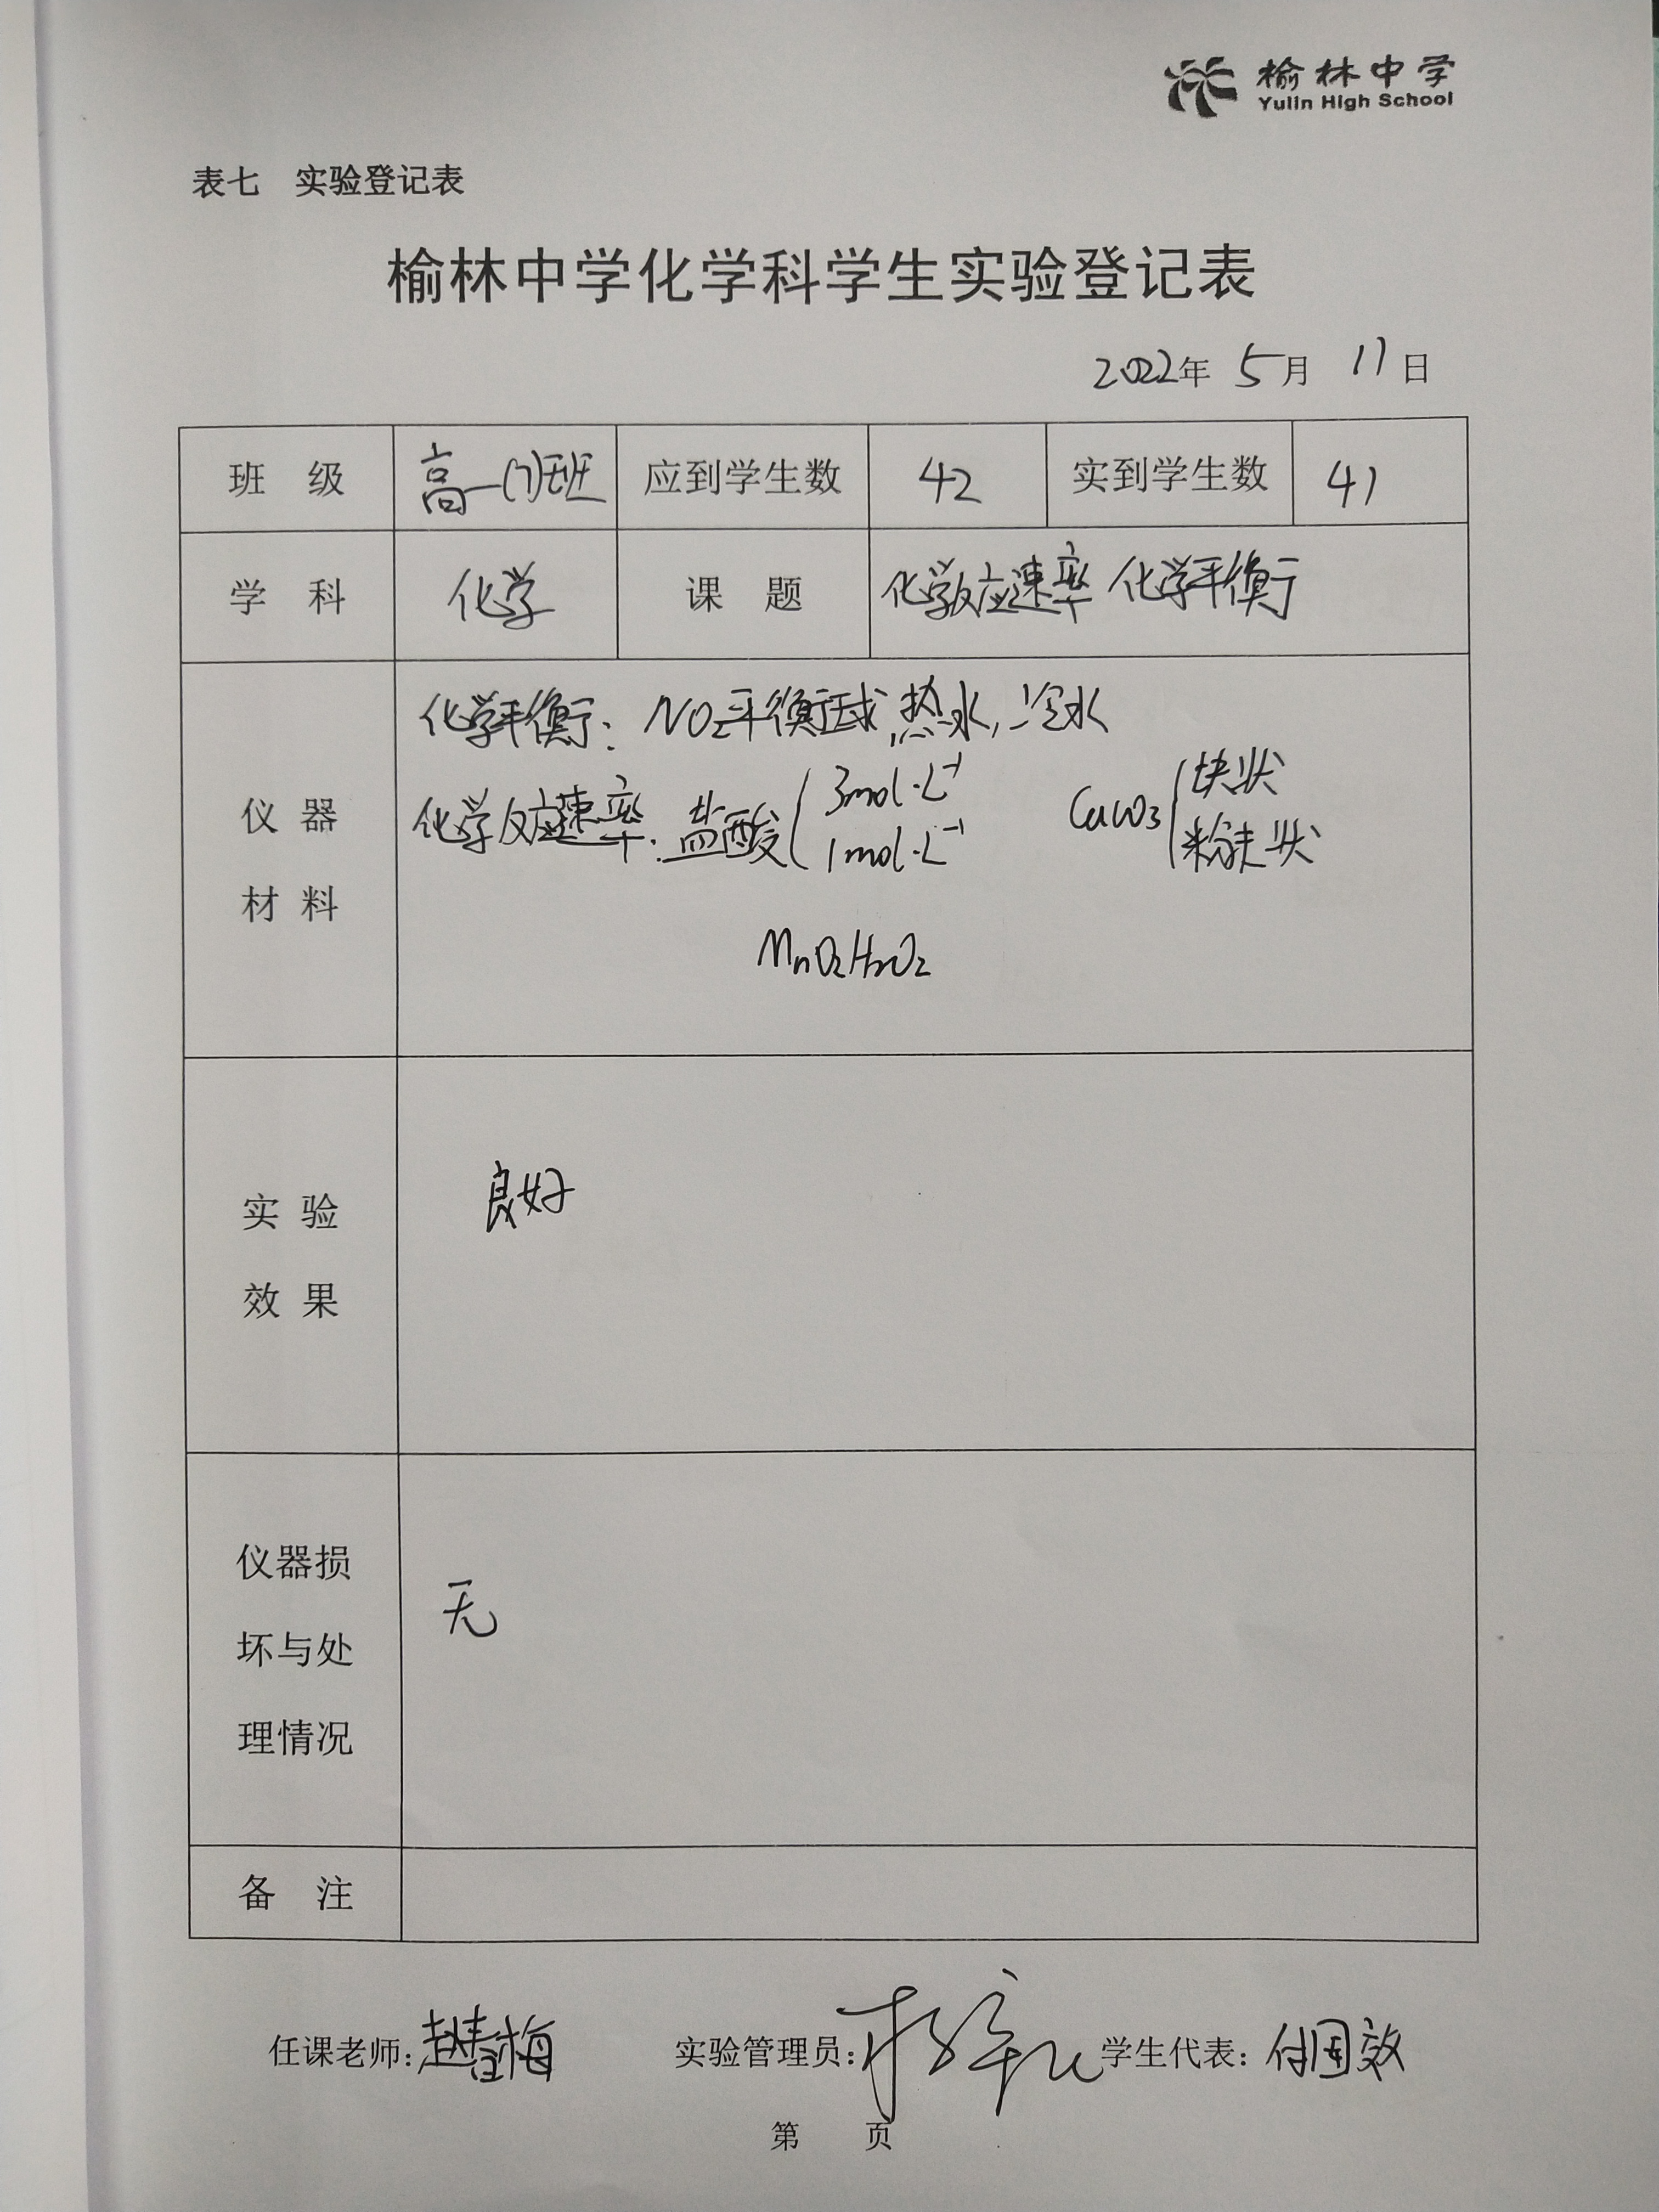 榆林中学
Yulin High School
表七 实验登记表
榆林中学化学科学生实验登记表
2022年 5月 11日
班 级 高一(7)班 应到学生数 42 实到学生数 41
学 科 化学 课 题 化学反应速率 化学平衡
仪 器
材 料
化学平衡: NO2平衡球,热水,冷水
化学反应速率: 盐酸 3mol·L⁻¹ CaCO3 块状
1mol·L⁻¹ 粉末状
MnO2 H2O2
实 验
效 果
良好
仪器损
坏与处
理情况
无
备 注
任课老师: 赵春梅 实验管理员: 学生代表: 付国效
第 页